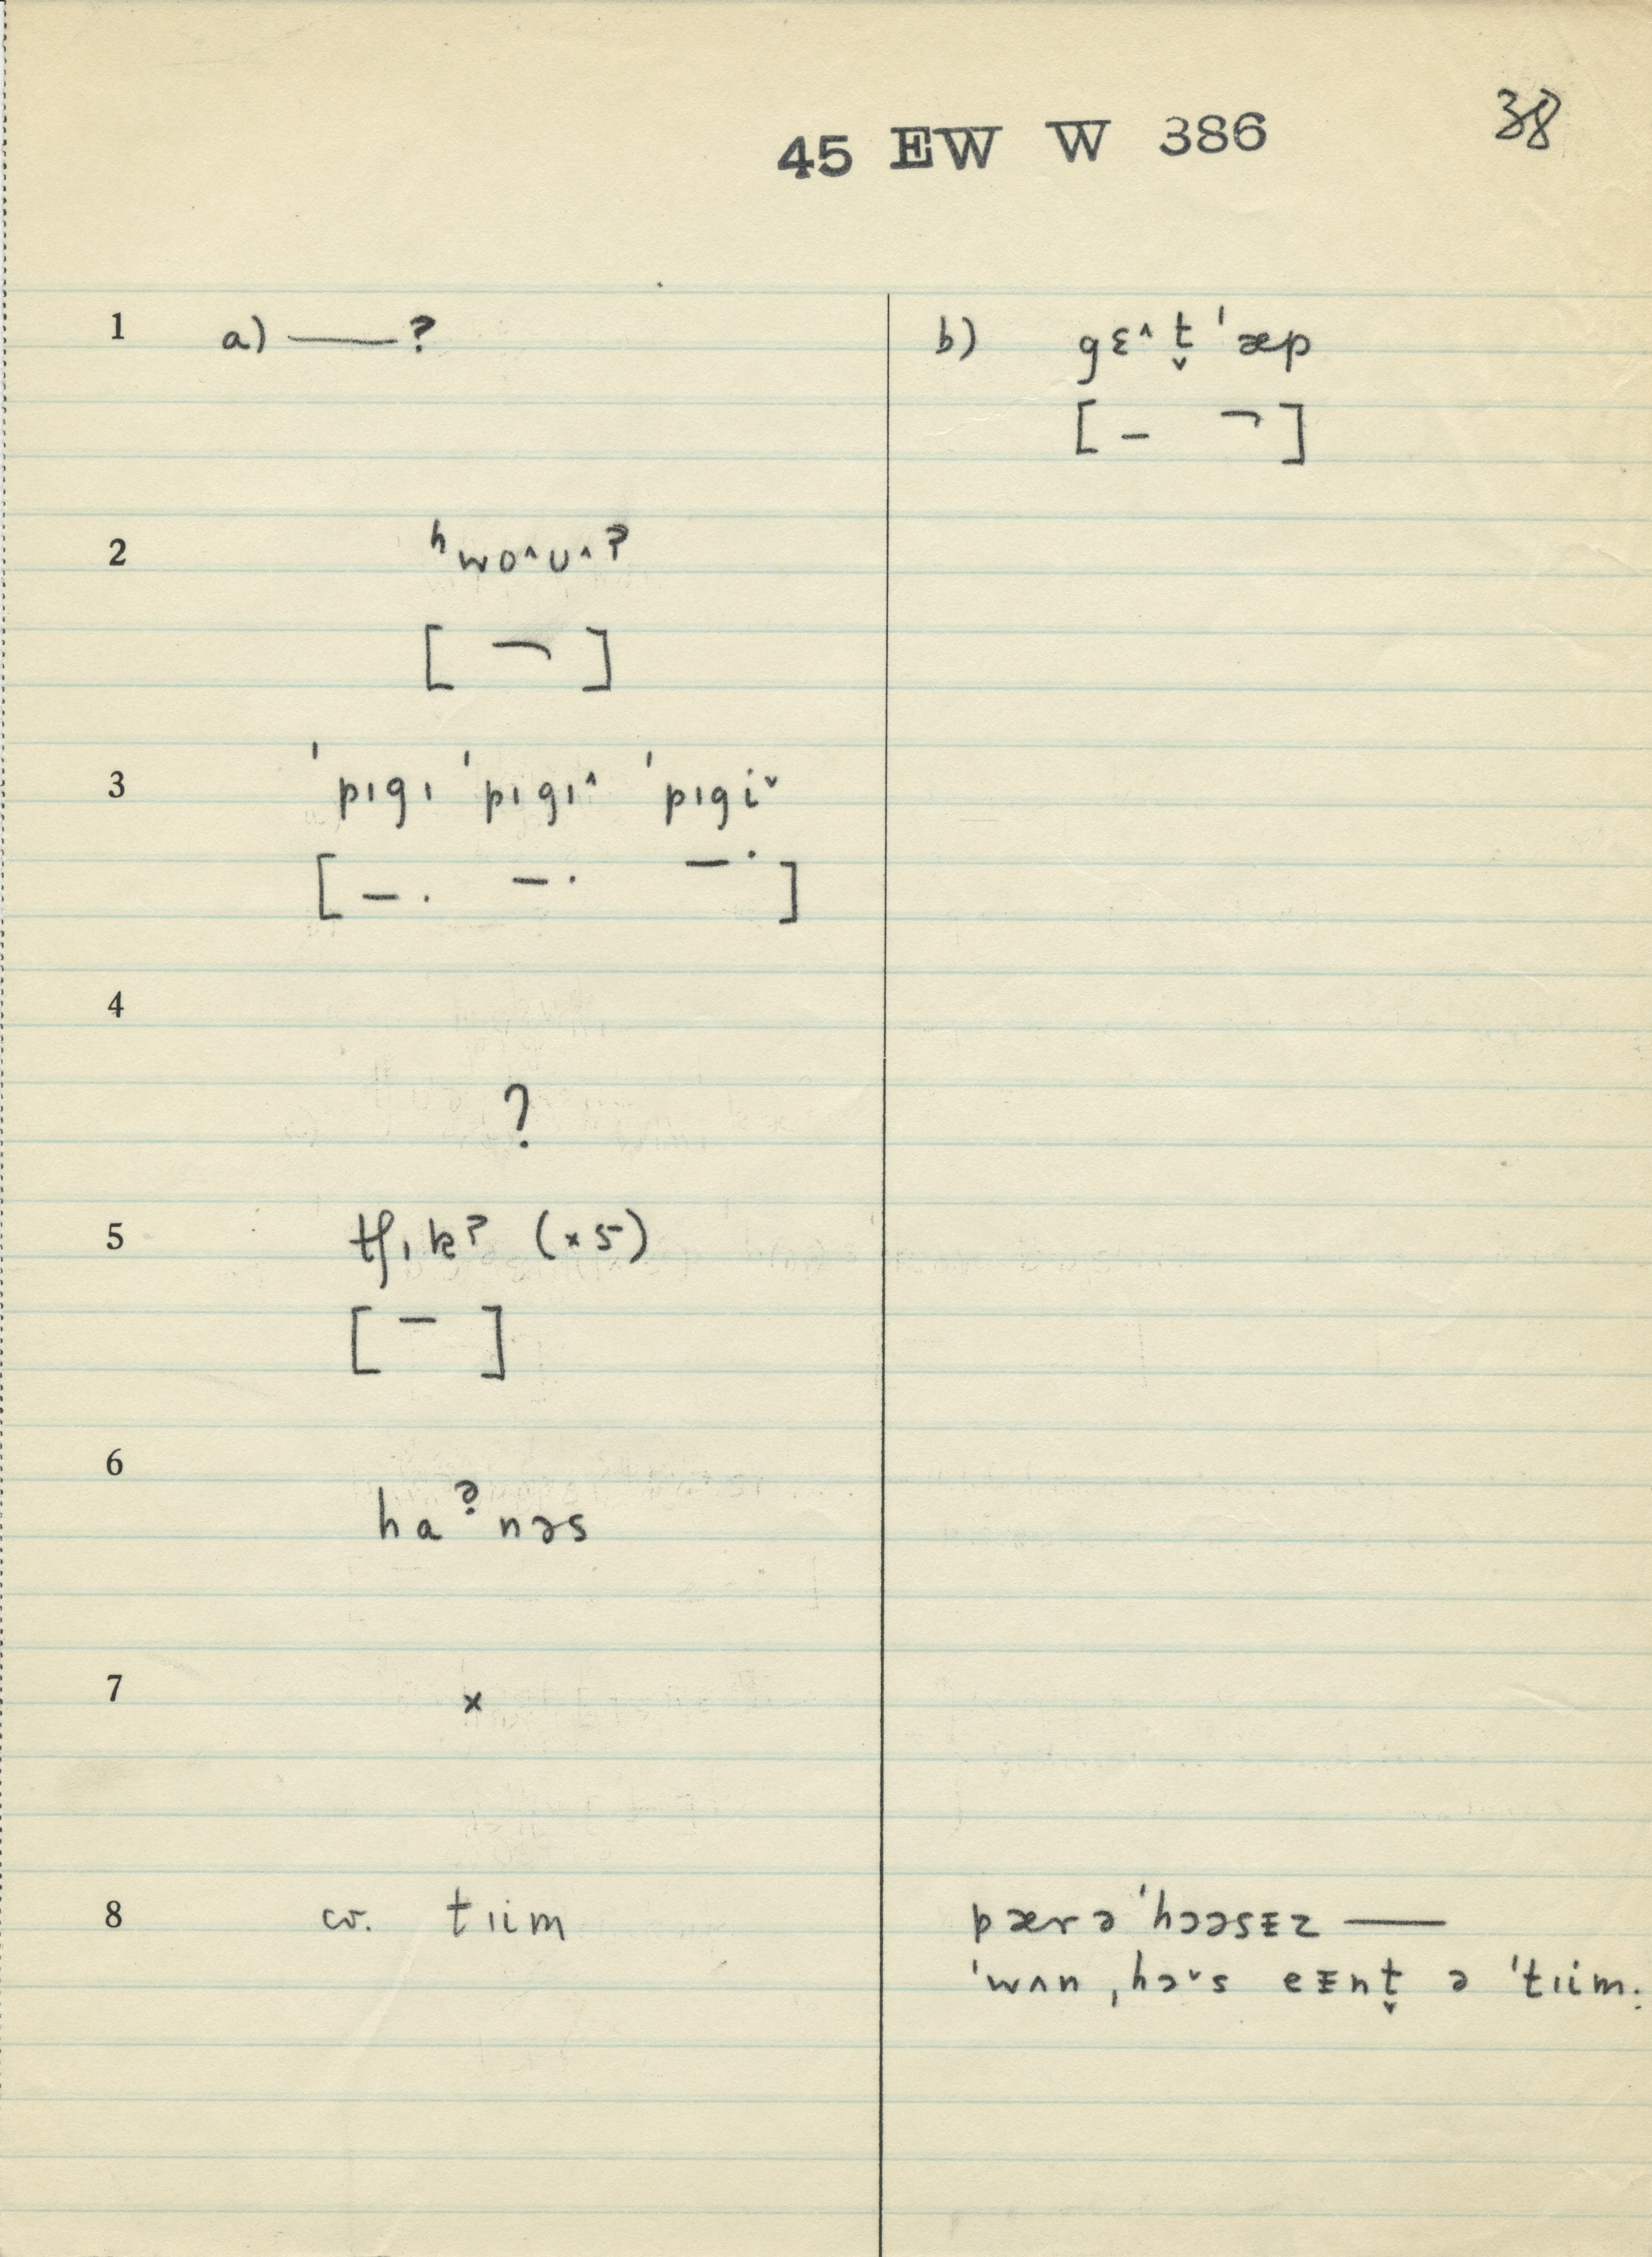 45 EW W 386
38
1 a) ——? b) gɛ^t̬ ˈæp
[ – ¬ ]
2 ʰwo^ʊ^?
[ ¬ ]
3 ˈpɪgɪ ˈpɪgɪ^ ˈpɪgi˅
[ – · – · – · ]
4
?
5 tʃɪk? (×5)
[ – ]
6
haʔnəs
7 ×
8 cv. tɪim pærə ˈhɔəsᴇz ——
ˈwʌn ˌhɔ˅s eᴇnt̬ ə ˈtɪim.